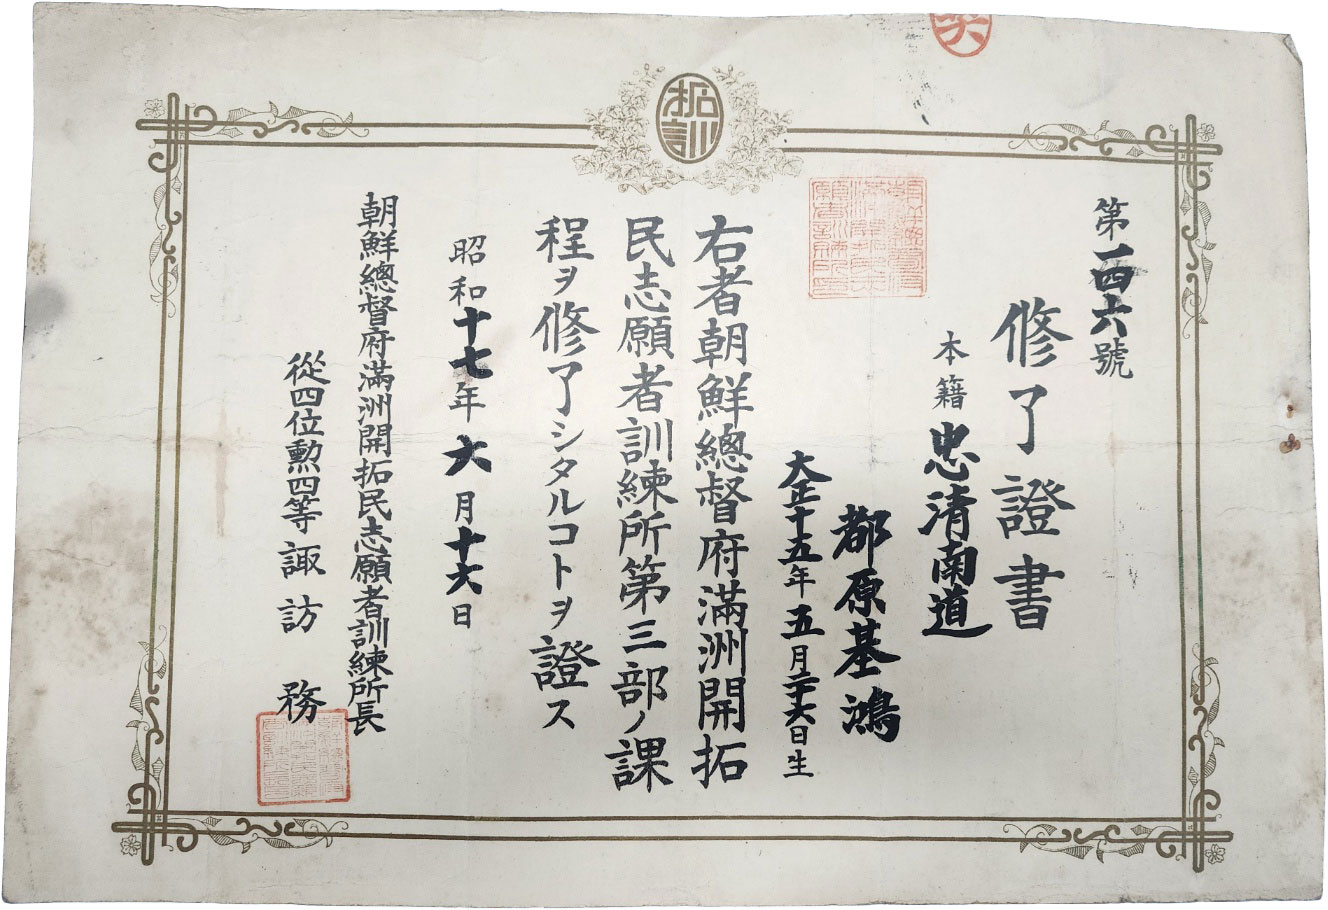 拓訓
第一四六號
修了證書
本籍 忠清南道
都原基鴻
大正十五年五月二十六日生
右者朝鮮總督府滿洲開拓
民志願者訓練所第三部ノ課
程ヲ修了シタルコトヲ證ス
昭和十七年六月十六日
朝鮮總督府滿洲開拓民志願者訓練所長
從四位勲四等 諏訪務